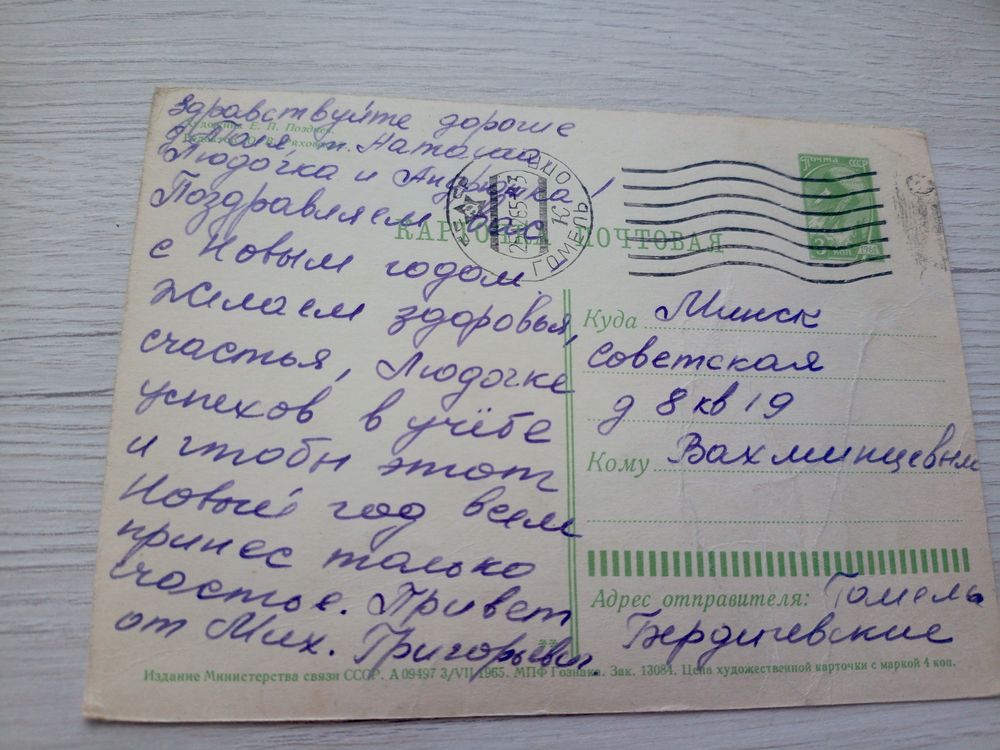 Здравствуйте дорогие
и Наташа
Людочка и Андрюшка!
Поздравляем Вас
с Новым годом.
Желаем здоровья,
счастья, Людочке
успехов в учёбе
и чтобы этот
Новый год всем
принес только
счастье. Привет
от Мих. Григорьевич
КАРТОЧКА ПОЧТОВАЯ
ПОЧТА СССР
1961
ГОМЕЛЬ
Куда Минск
Советская
д 8 кв 19
Кому Вахминцевым
Адрес отправителя: Гомель
Бердичевские
Издание Министерства связи СССР. А 09497 3/VII 1965. МПФ Гознака. Зак. 13084. Цена художественной карточки с маркой 4 коп.